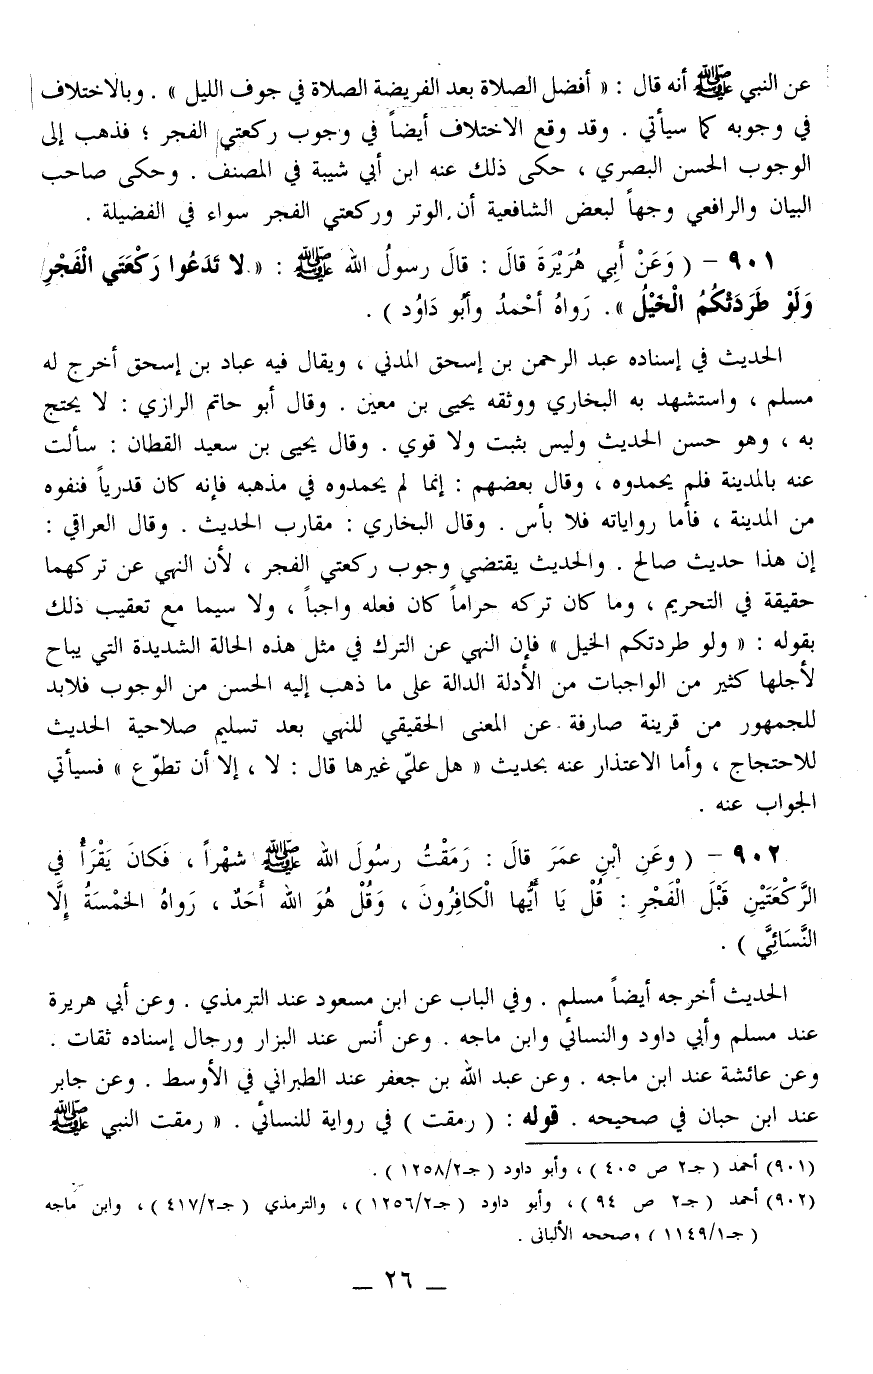 عن النبي ﷺ أنه قال : « أفضل الصلاة بعد الفريضة الصلاة في جوف الليل » . وبالاختلاف
في وجوبه كما سيأتي . وقد وقع الاختلاف أيضاً في وجوب ركعتي الفجر ؛ فذهب إلى
الوجوب الحسن البصري ، حكى ذلك عنه ابن أبي شيبة في المصنف . وحكى صاحب
البيان والرافعي وجهاً لبعض الشافعية أن الوتر وركعتي الفجر سواء في الفضيلة .
٩٠١ – ( وَعَنْ أَبِي هُرَيْرَةَ قَالَ : قالَ رسولُ الله ﷺ : « لا تَدَعُوا رَكْعَتَي الْفَجْرِ
وَلَوْ طَرَدَتْكُمُ الْخَيْلُ ». رَواهُ أحْمدُ وأبُو دَاوُد ) .
الحديث في إسناده عبد الرحمن بن إسحق المدني ، ويقال فيه عباد بن إسحق أخرج له
مسلم ، واستشهد به البخاري ووثقه يحيى بن معين . وقال أبو حاتم الرازي : لا يحتج
به ، وهو حسن الحديث وليس بثبت ولا قوي . وقال يحيى بن سعيد القطان : سألت
عنه بالمدينة فلم يحمدوه ، وقال بعضهم : إنما لم يحمدوه في مذهبه فإنه كان قدرياً فنفوه
من المدينة ، فأما رواياته فلا بأس . وقال البخاري : مقارب الحديث . وقال العراقي :
إن هذا حديث صالح . والحديث يقتضي وجوب ركعتي الفجر ، لأن النهي عن تركهما
حقيقة في التحريم ، وما كان تركه حراماً كان فعله واجباً ، ولا سيما مع تعقيب ذلك
بقوله : « ولو طردتكم الخيل » فإن النهي عن الترك في مثل هذه الحالة الشديدة التي يباح
لأجلها كثير من الواجبات من الأدلة الدالة على ما ذهب إليه الحسن من الوجوب فلابد
للجمهور من قرينة صارفة عن المعنى الحقيقي للنهي بعد تسليم صلاحية الحديث
للاحتجاج ، وأما الاعتذار عنه بحديث « هل عليّ غيرها قال : لا ، إلا أن تطوّع » فسيأتي
الجواب عنه .
٩٠٢ – ( وعَنِ ابْنِ عمَرَ قالَ : رَمَقْتُ رسُولَ الله ﷺ شهْراً ، فَكانَ يَقْرَأُ في
الرَّكْعَتَيْنِ قَبْلَ الْفَجْرِ : قُلْ يَا أَيُّها الْكافِرُونَ ، وَقُلْ هُوَ اللهُ أَحَدٌ ، رَواهُ الخمْسَةُ إلَّا
النَّسَائِيَّ ) .
الحديث أخرجه أيضاً مسلم . وفي الباب عن ابن مسعود عند الترمذي . وعن أبي هريرة
عند مسلم وأبي داود والنسائي وابن ماجه . وعن أنس عند البزار ورجال إسناده ثقات .
وعن عائشة عند ابن ماجه . وعن عبد الله بن جعفر عند الطبراني في الأوسط . وعن جابر
عند ابن حبان في صحيحه . قوله : ( رمقت ) في رواية للنسائي . « رمقت النبي ﷺ
(٩٠١) أحمد ( جـ٢ ص ٤٠٥ ) ، وأبو داود ( جـ١٢٥٨/٢ ) .
(٩٠٢) أحمد ( جـ٢ ص ٩٤ ) ، وأبو داود ( جـ١٢٥٦/٢ ) ، والترمذي ( جـ٤١٧/٢ ) ، وابن ماجه
( جـ١١٤٩/١ ) وصححه الألباني .
_ ٢٦ _